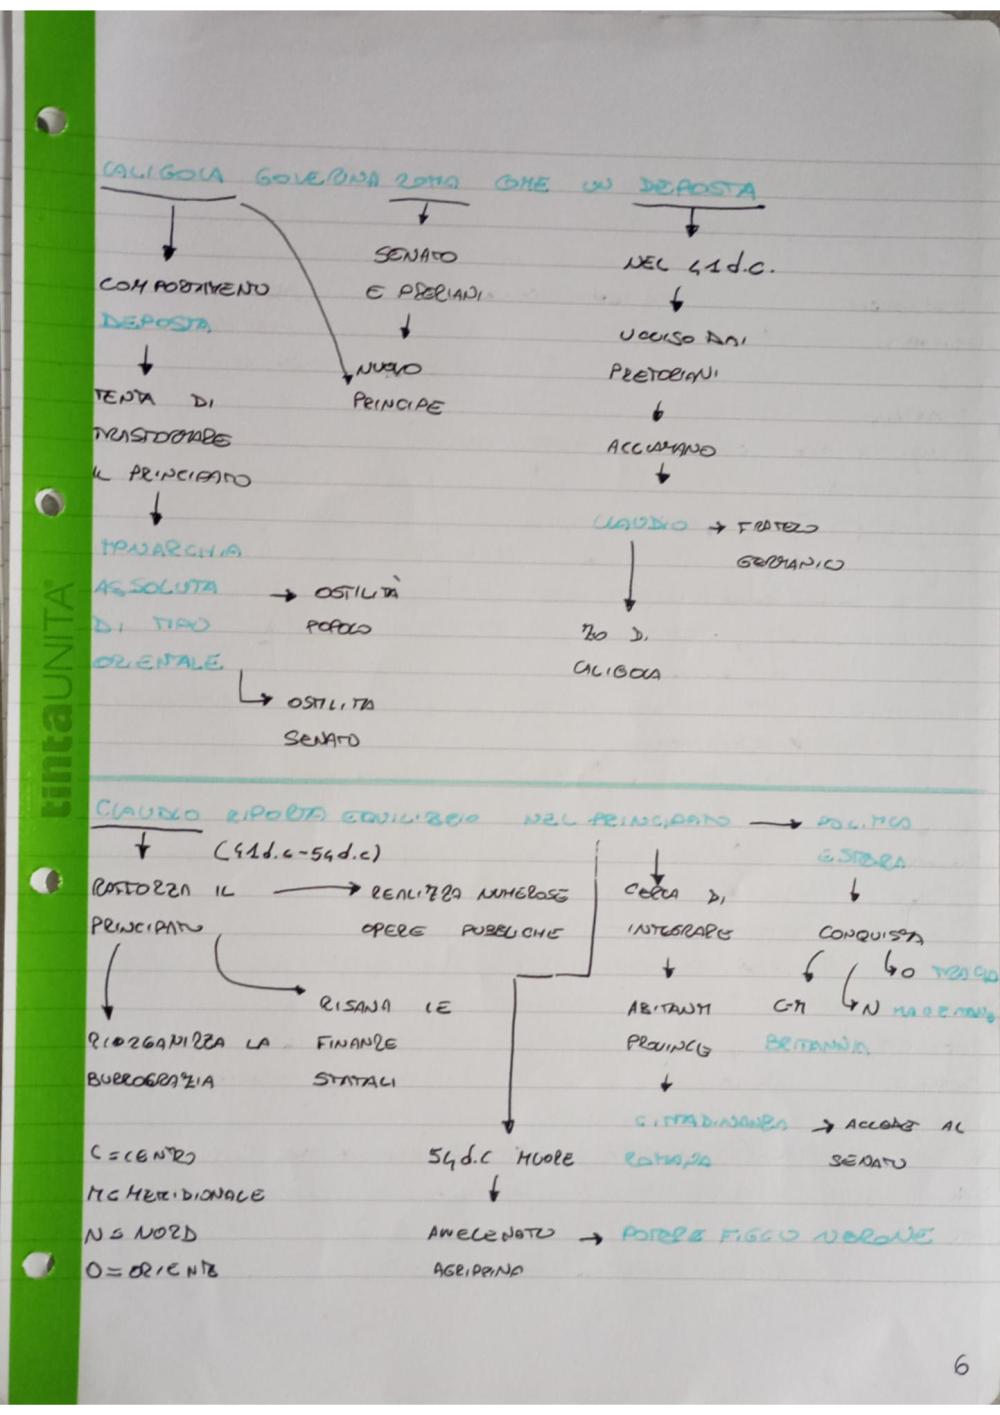 CALIGOLA GOVERNA ROMA COME UN DEPOSTA
SENATO
E PRERIANI
NUOVO
PRINCIPE
NEL 41 d.C.
UCCISO DAI
PRETORIANI
ACCLAMANO
CLAUDIO → FRATELLO
GERMANICO
ZIO DI
CALIGOLA
COMPORTAMENTO
DEPOSTA
TENTA DI
TRASFORMARE
IL PRINCIPATO
MONARCHIA
ASSOLUTA → OSTILITÀ
DI TIPO POPOLO
ORIENTALE
OSTILITA
SENATO
tintaUNITA
CLAUDIO RIPORTA EQUILIBRIO NEL PRINCIPATO → POLITICA
ESTERA
(41d.c-54d.c)
RAFFORZA IL → REALIZZA NUMEROSE
PRINCIPATO OPERE PUBBLICHE
CERCA DI
INTEGRARE
CONQUISTA
O TRACIA
C-M N MAURETANIA
BRITANNIA
RISANA LE
FINANZE
STATALI
RIORGANIZZA LA
BURROGRAZIA
ABITANTI
PROVINCE
CITTADINANZA → ACCEDE AL
ROMANA SENATO
C=CENTRO
M=MERIDIONALE
N=NORD
O=ORIENTE
54 d.C MUORE
AVVELENATO → POTERE FIGLIO NERONE
AGRIPPINA
6